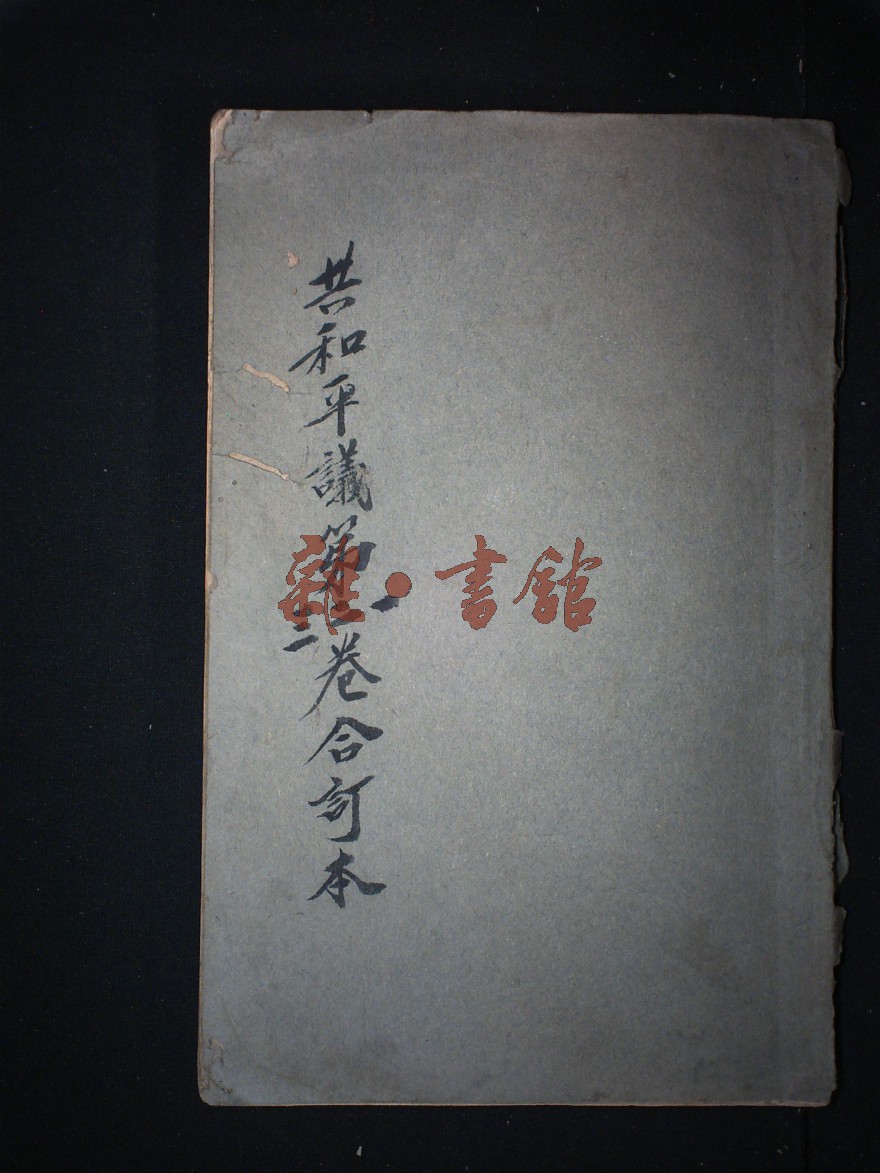 共和平議第一二三卷合訂本
雜·書館